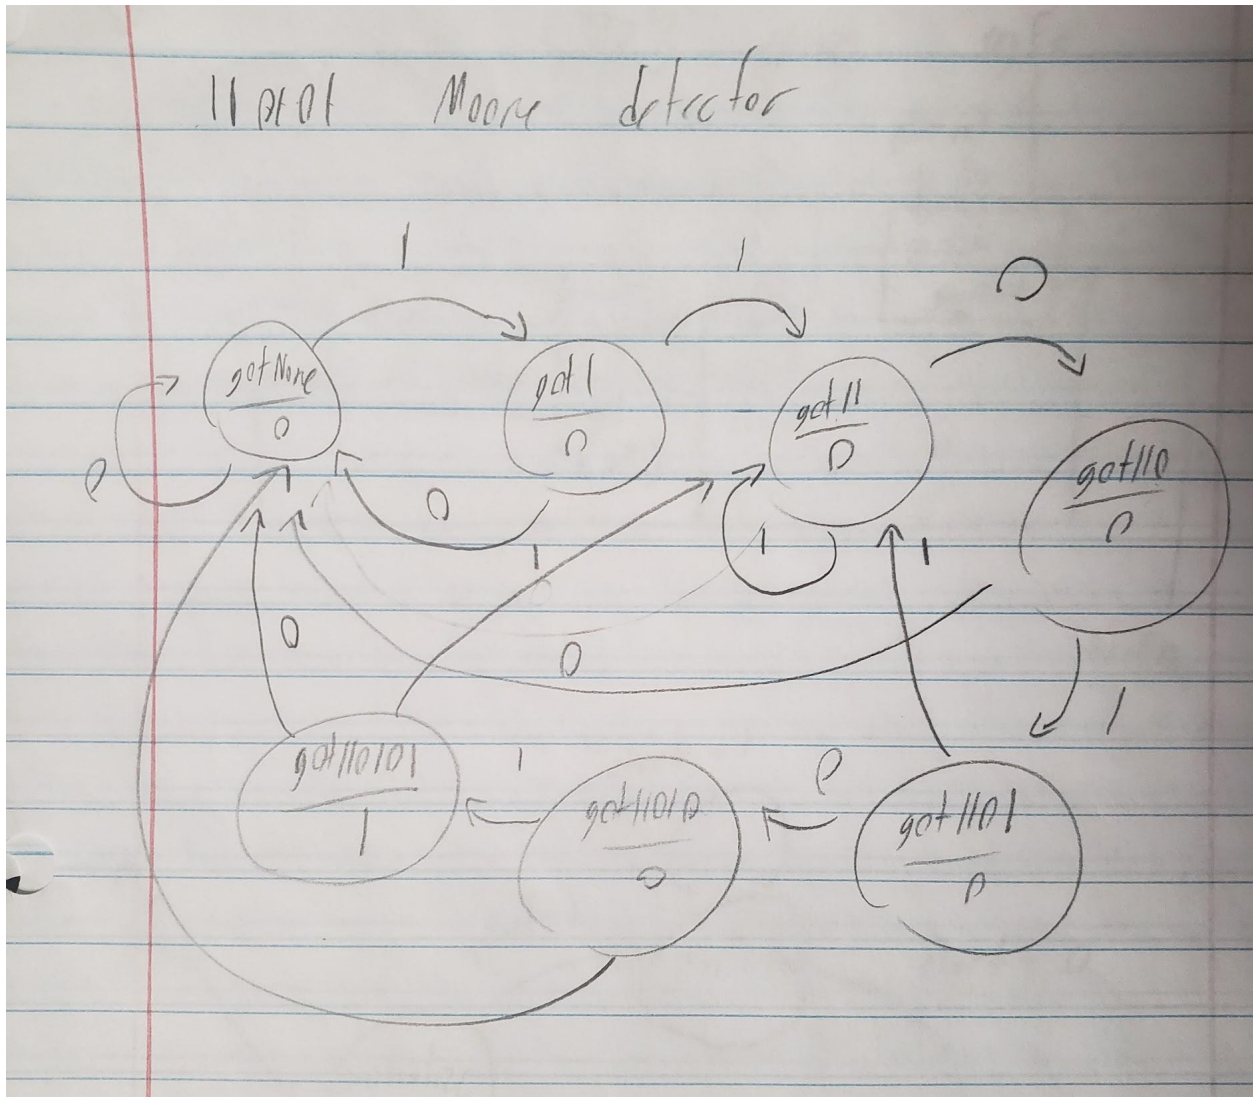 110101 Moore detector
1 1 0
gotNone
0
got1
0
got11
0
got110
0
0
0
1
1
1
0
0
1
got110101
1
1
got11010
0
0
got1101
0